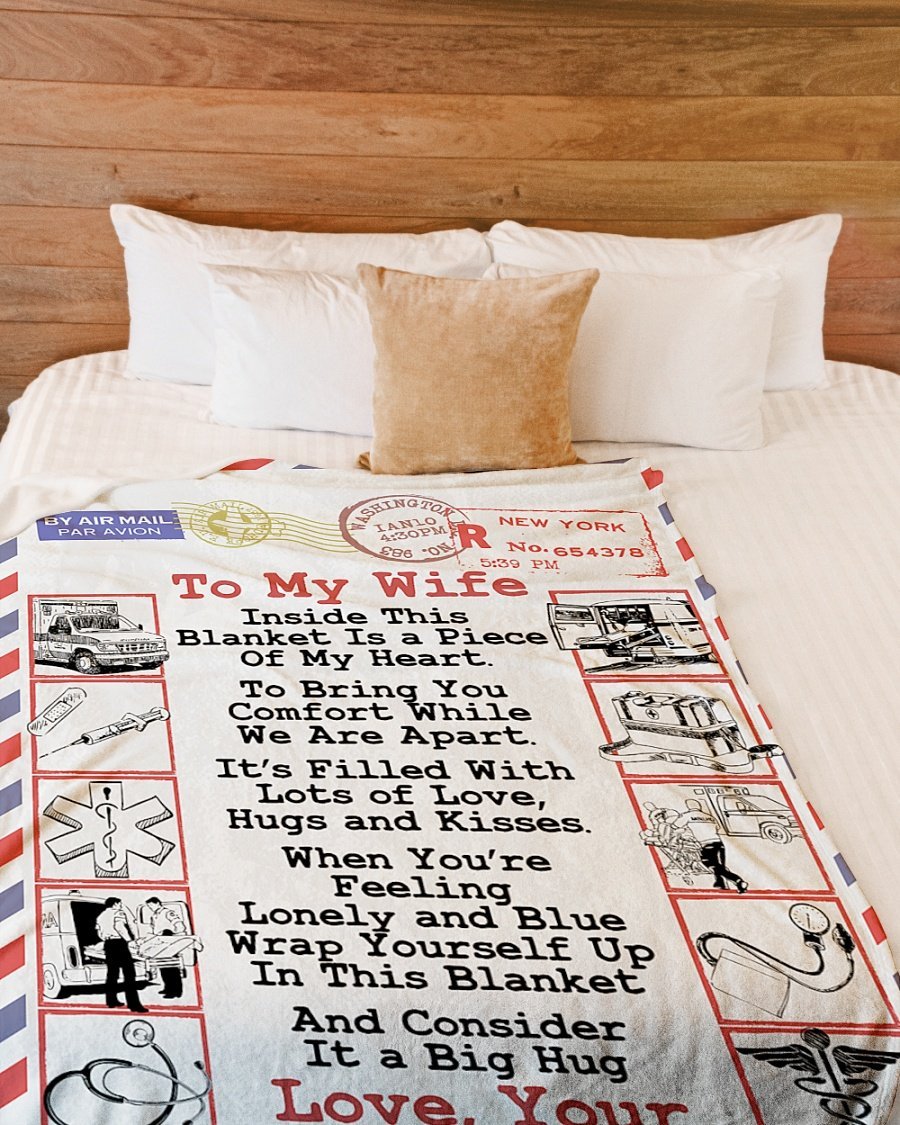 BY AIR MAIL
PAR AVION
WASHINGTON
IAN10
4:30PM
NO. 983
R
NEW YORK
No. 654378
5:39 PM
To My Wife
Inside This
Blanket Is a Piece
Of My Heart.
To Bring You
Comfort While
We Are Apart.
It's Filled With
Lots of Love,
Hugs and Kisses.
When You're
Feeling
Lonely and Blue
Wrap Yourself Up
In This Blanket
And Consider
It a Big Hug
Love, Your